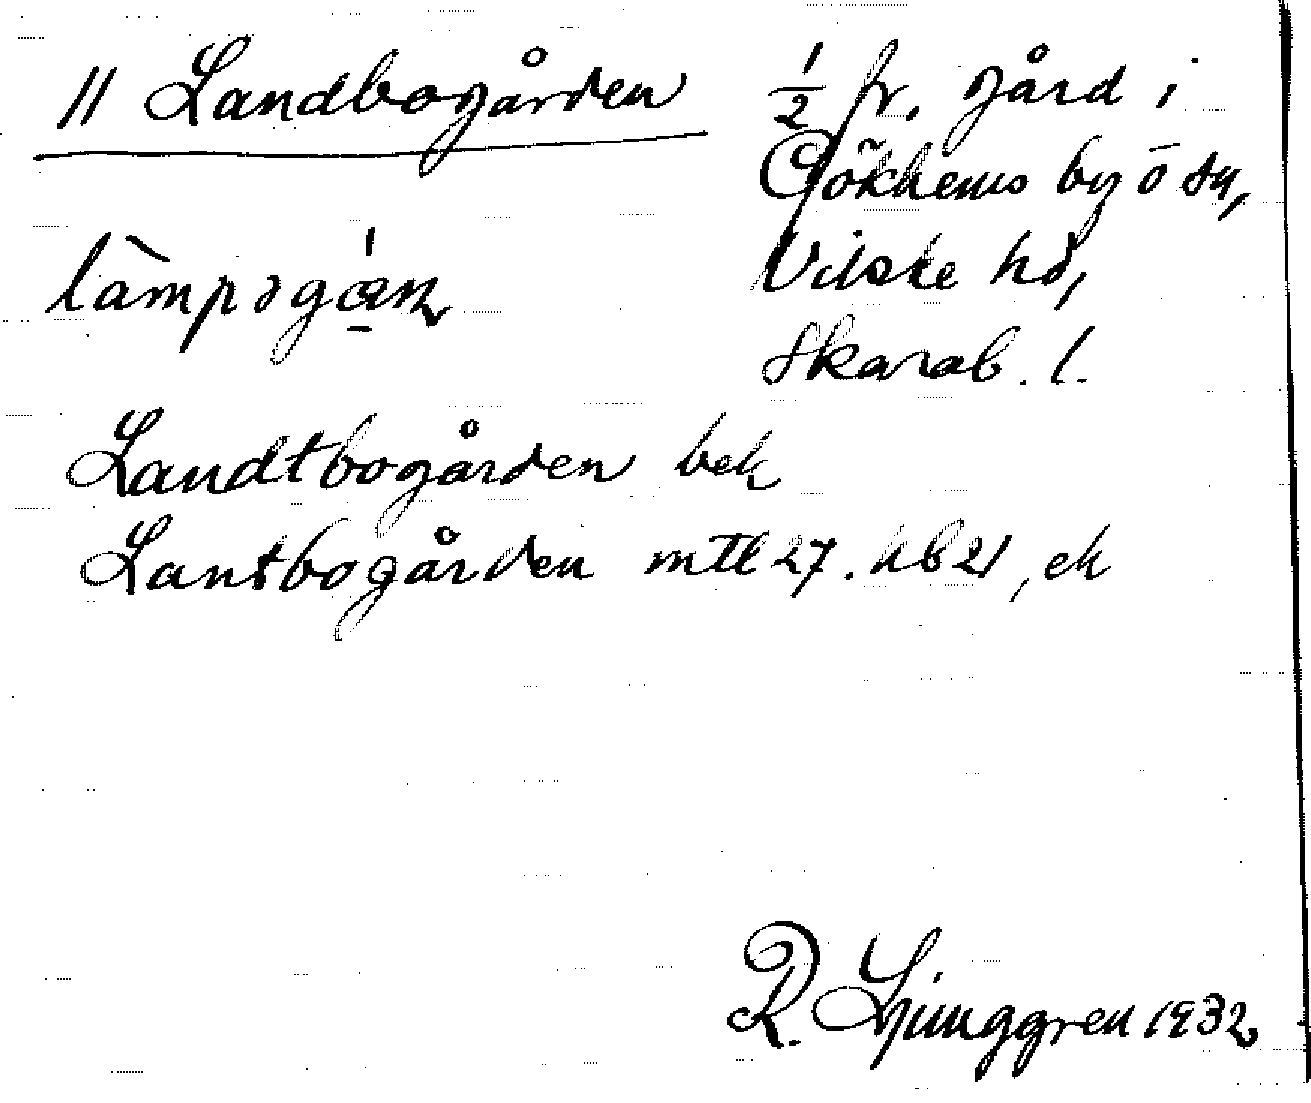 11 Landbogården
½ fr. gård i
Gökhems by o sn,
Vilske hd,
Skarab. l.
làmpogá̱ɳ
Landtbogården bek
Lantbogården mtl 27. hb 21, ek
R. Ljunggren 1932